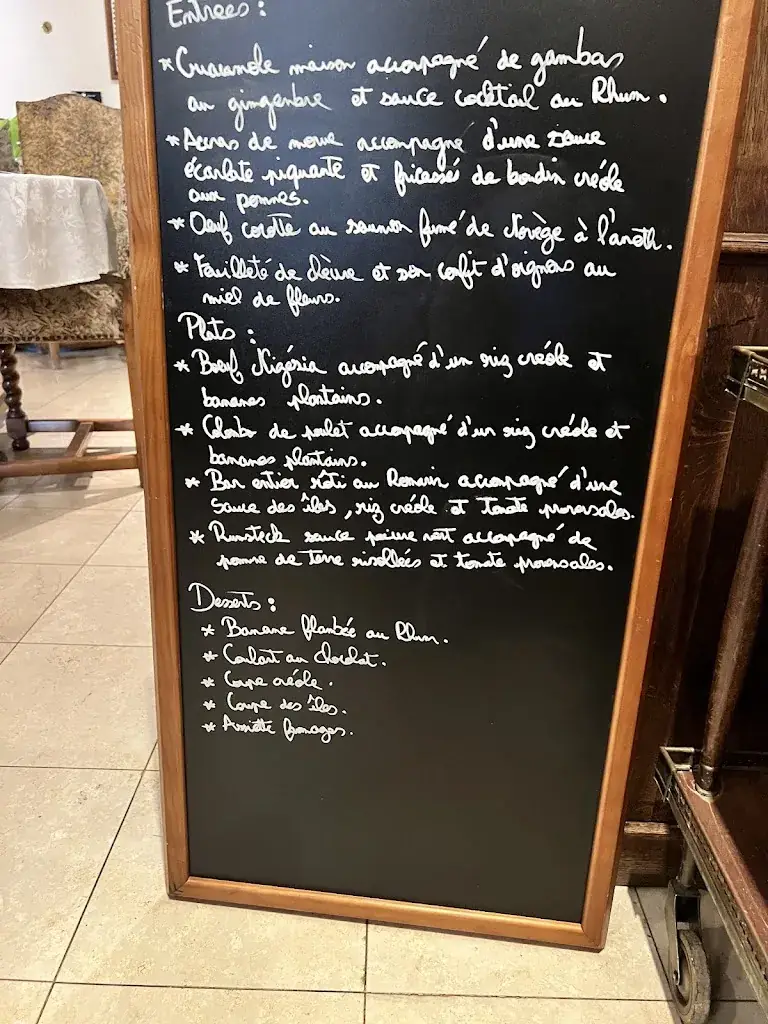 Entrees :
* Guacamole maison accompagné de gambas
au gingembre et sauce cocktail au Rhum.
* Acras de morue accompagné d'une sauce
écarlate piquante et fricassé de boudin créole
aux pommes.
* Oeuf cocotte au saumon fumé de Norvège à l'aneth.
* Feuilleté de chèvre et son confit d'oignons au
miel de fleurs.
Plats :
* Boeuf Nigéria accompagné d'un riz créole et
bananes plantains.
* Colombo de poulet accompagné d'un riz créole et
bananes plantains.
* Bar entier rôti au Romarin accompagné d'une
Sauce des îles, riz créole et tomate provensales.
* Rumsteck sauce poivre vert accompagné de
pomme de terre rissollées et tomate provensales.
Desserts :
* Banane flambée au Rhum.
* Coulant au chocolat.
* Coupe créole.
* Coupe des îles.
* Assiette fromages.